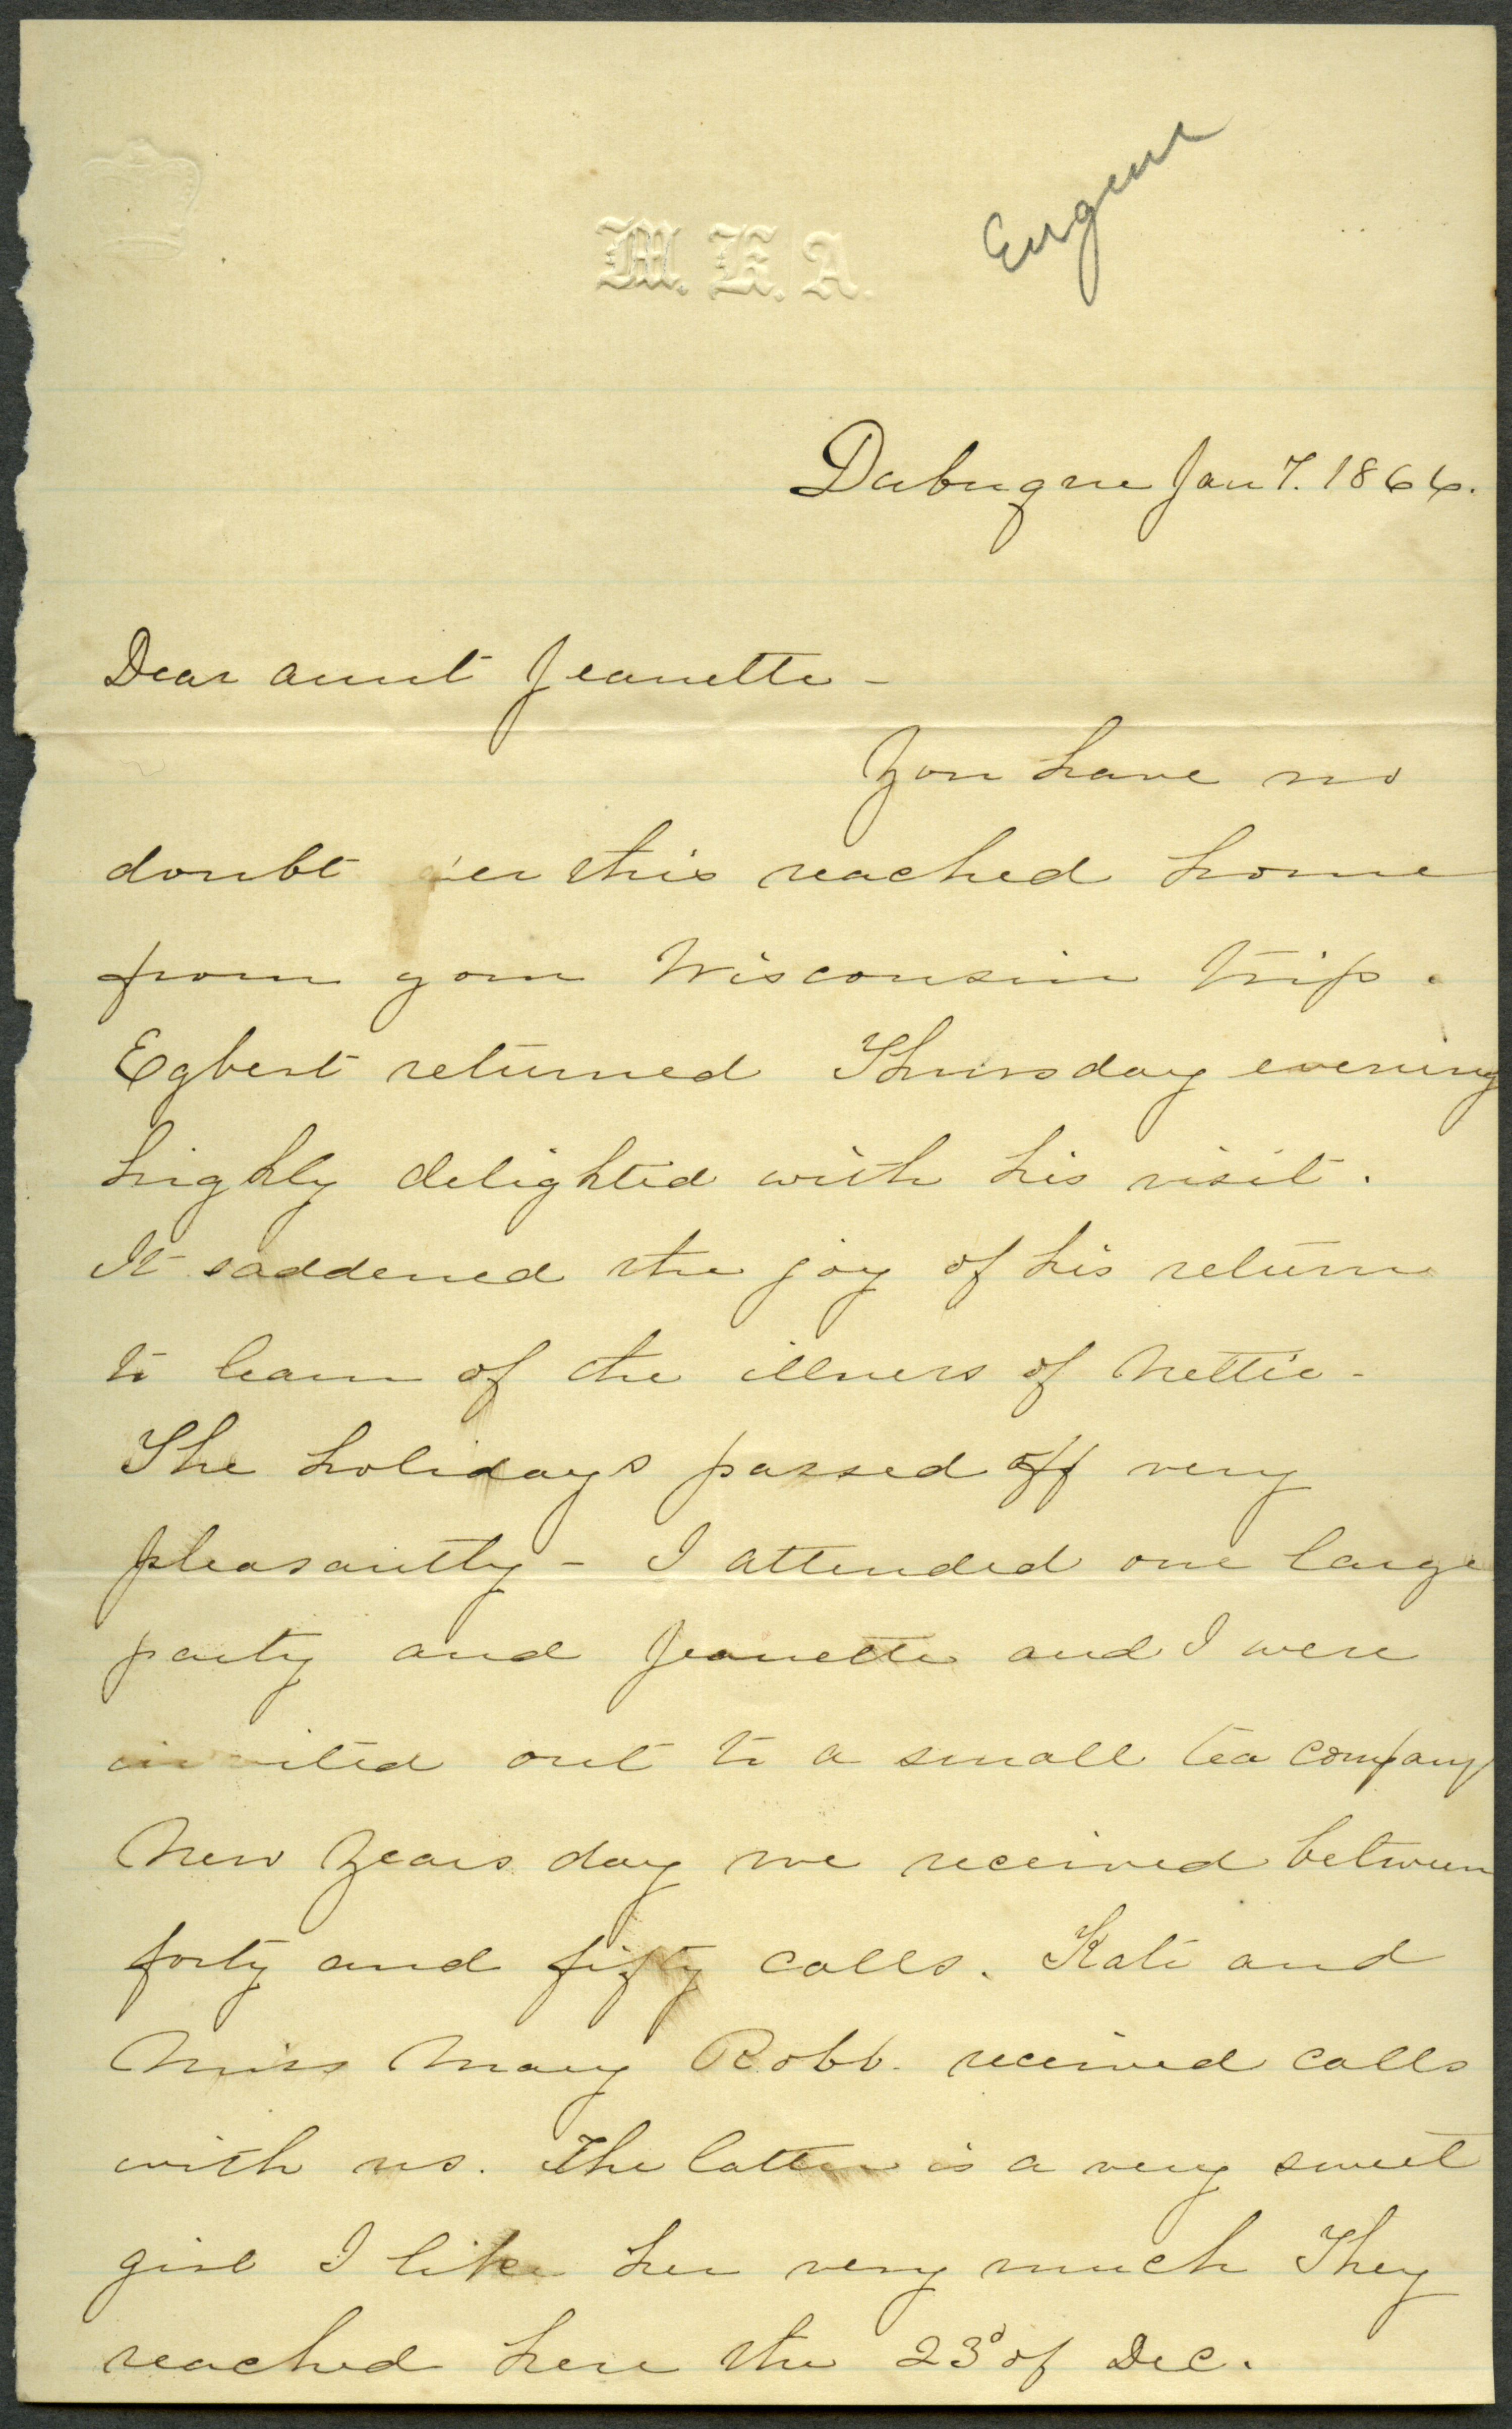 M. K. A.
Eugene
Dubuque Jan 7. 1866.
Dear aunt Jeanette -
You have no
doubt 'er this reached home
from your Wisconsin trip.
Egbert returned Thursday evening
highly delighted with his visit.
It saddened the joy of his return
to learn of the illness of Nettie -
The holidays passed off very
pleasantly - I attended one large
party and Jeanette and I were
invited out to a small tea company
New Years day we received between
forty and fifty calls. Kate and
Miss Mary Robb. received calls
with us. The latter is a very sweet
girl I like her very much They
reached here the 23d of Dec.